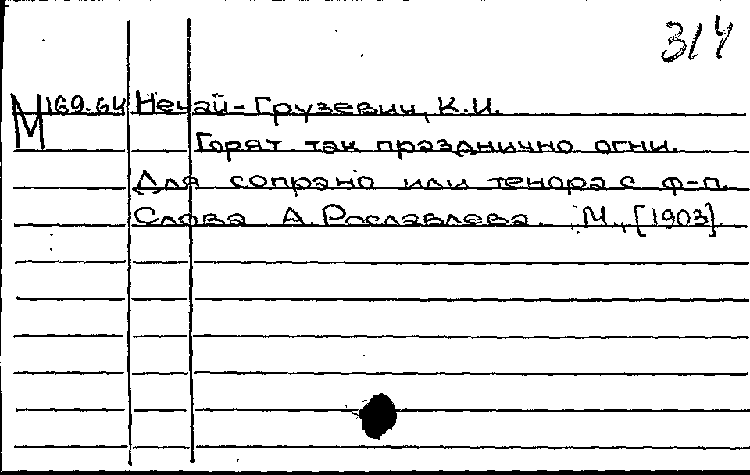 314
М 169.64 Нечай-Грузевич, К.И.
Горят так празднично огни.
Для сопрано или тенора с ф-п.
Слова А. Рославлева. М., [1903].